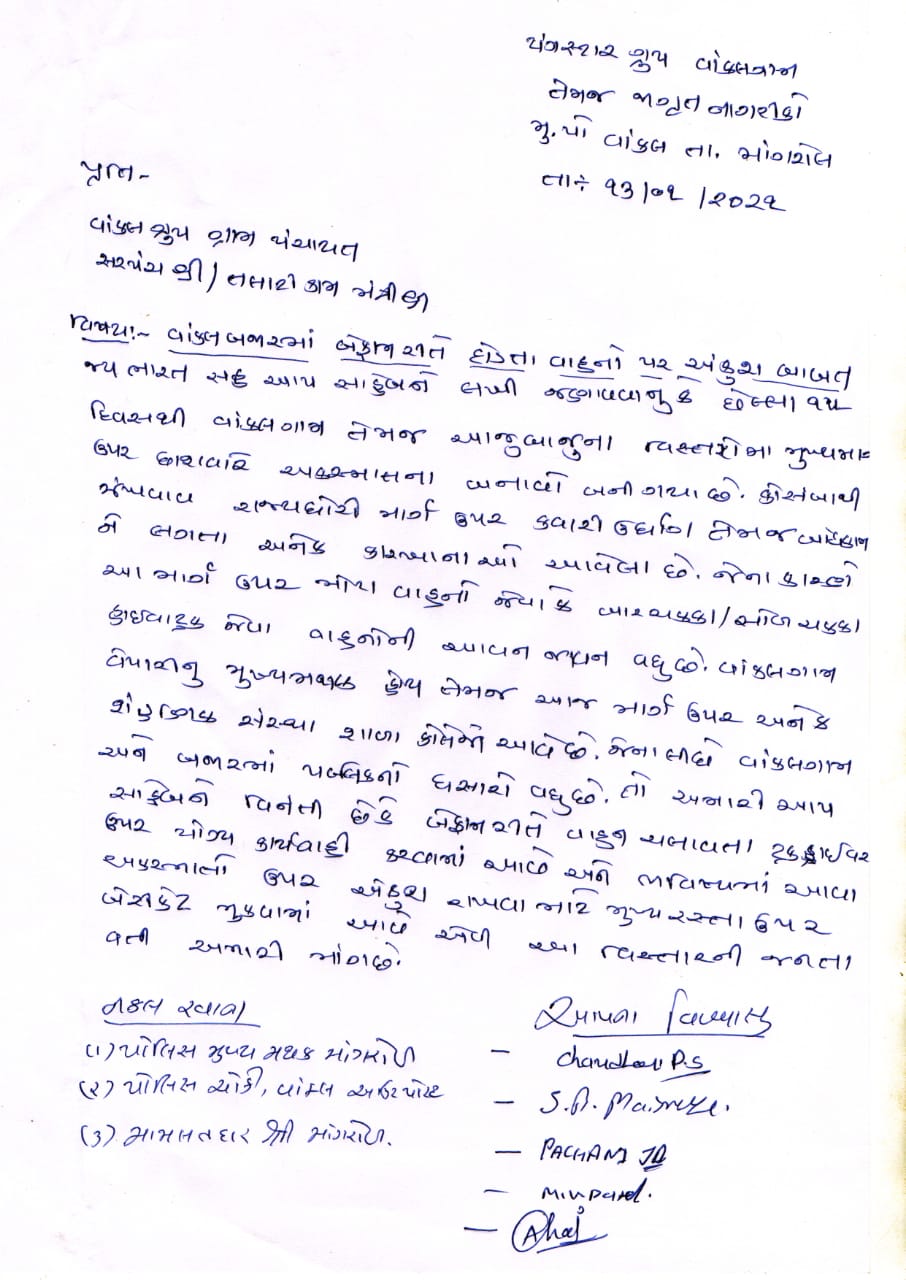 યંગસ્ટાર ગ્રુપ વાંકલગામ
તેમજ જાગૃત નાગરીકો
મુ.પો વાંકલ તા. માંગરોલ
તા÷ ૧૩/૦૧/૨૦૨૧
પ્રતિ -
વાંકલ ગ્રુપ ગ્રામ પંચાયત
સરપંચ શ્રી / તલાટી કમ મંત્રીશ્રી
વિષય:- વાંકલ બજારમાં બેફામ રીતે દોડતા વાહનો પર અંકુશ બાબત
જય ભારત સહ આપ સાહેબને લખી જણાવવાનું કે છેલ્લા
દિવસથી વાંકલગામ તેમજ આજુબાજુના વિસ્તારોમાં મુખ્યમાર્ગ
ઉપર અકસ્માતના બનાવો બની ગયા છે. કોસંબાથી
ઝંખવાવ રાજ્યધોરી માર્ગ ઉપર કવારી ઉદ્યોગ તેમજ
ને લગતા અનેક કારખાનાઓ આવેલા છે. જેના કારણે
આ માર્ગ ઉપર મોટા વાહનો જેવા કે બારચક્કા/સોળ ચક્કા
હાઇવાટ્રક જેવા વાહનોની આવન જાવન વધુ છે. વાંકલગામ
વેપારનુ મુખ્યમથક હોય તેમજ આજ માર્ગ ઉપર અનેક
શૈક્ષણિક સંસ્થા શાળા કોલેજો આવે છે. જેના લીધે વાંકલગામ
અને બજારમાં પબ્લિકનો ઘસારો વધુ છે. તો અમારી આપ
સાહેબને વિનંતી છે કે બેફામ રીતે વાહન ચલાવતા ટ્રક ડ્રાઇવર
ઉપર યોગ્ય કાર્યવાહી કરવામાં આવે અને ભવિષ્યમાં આવા
અકસ્માતો ઉપર અંકુશ રાખવા માટે મુખ્ય રસ્તા ઉપર
બેરીકેટ મુકવામાં આવે એવી આ વિસ્તારની જનતા
વતી અમારી માંગ છે.
નકલ રવાના
(૧) પોલિસ મુખ્ય મથક માંગરોળ
(૨) પોલિસ ચોકી, વાંકલ આઉટપોસ્ટ
(૩) મામલતદાર શ્રી માંગરોળ.
આપના વિશ્વાસુ
- Chaudhari P.S
- PACHANI JD